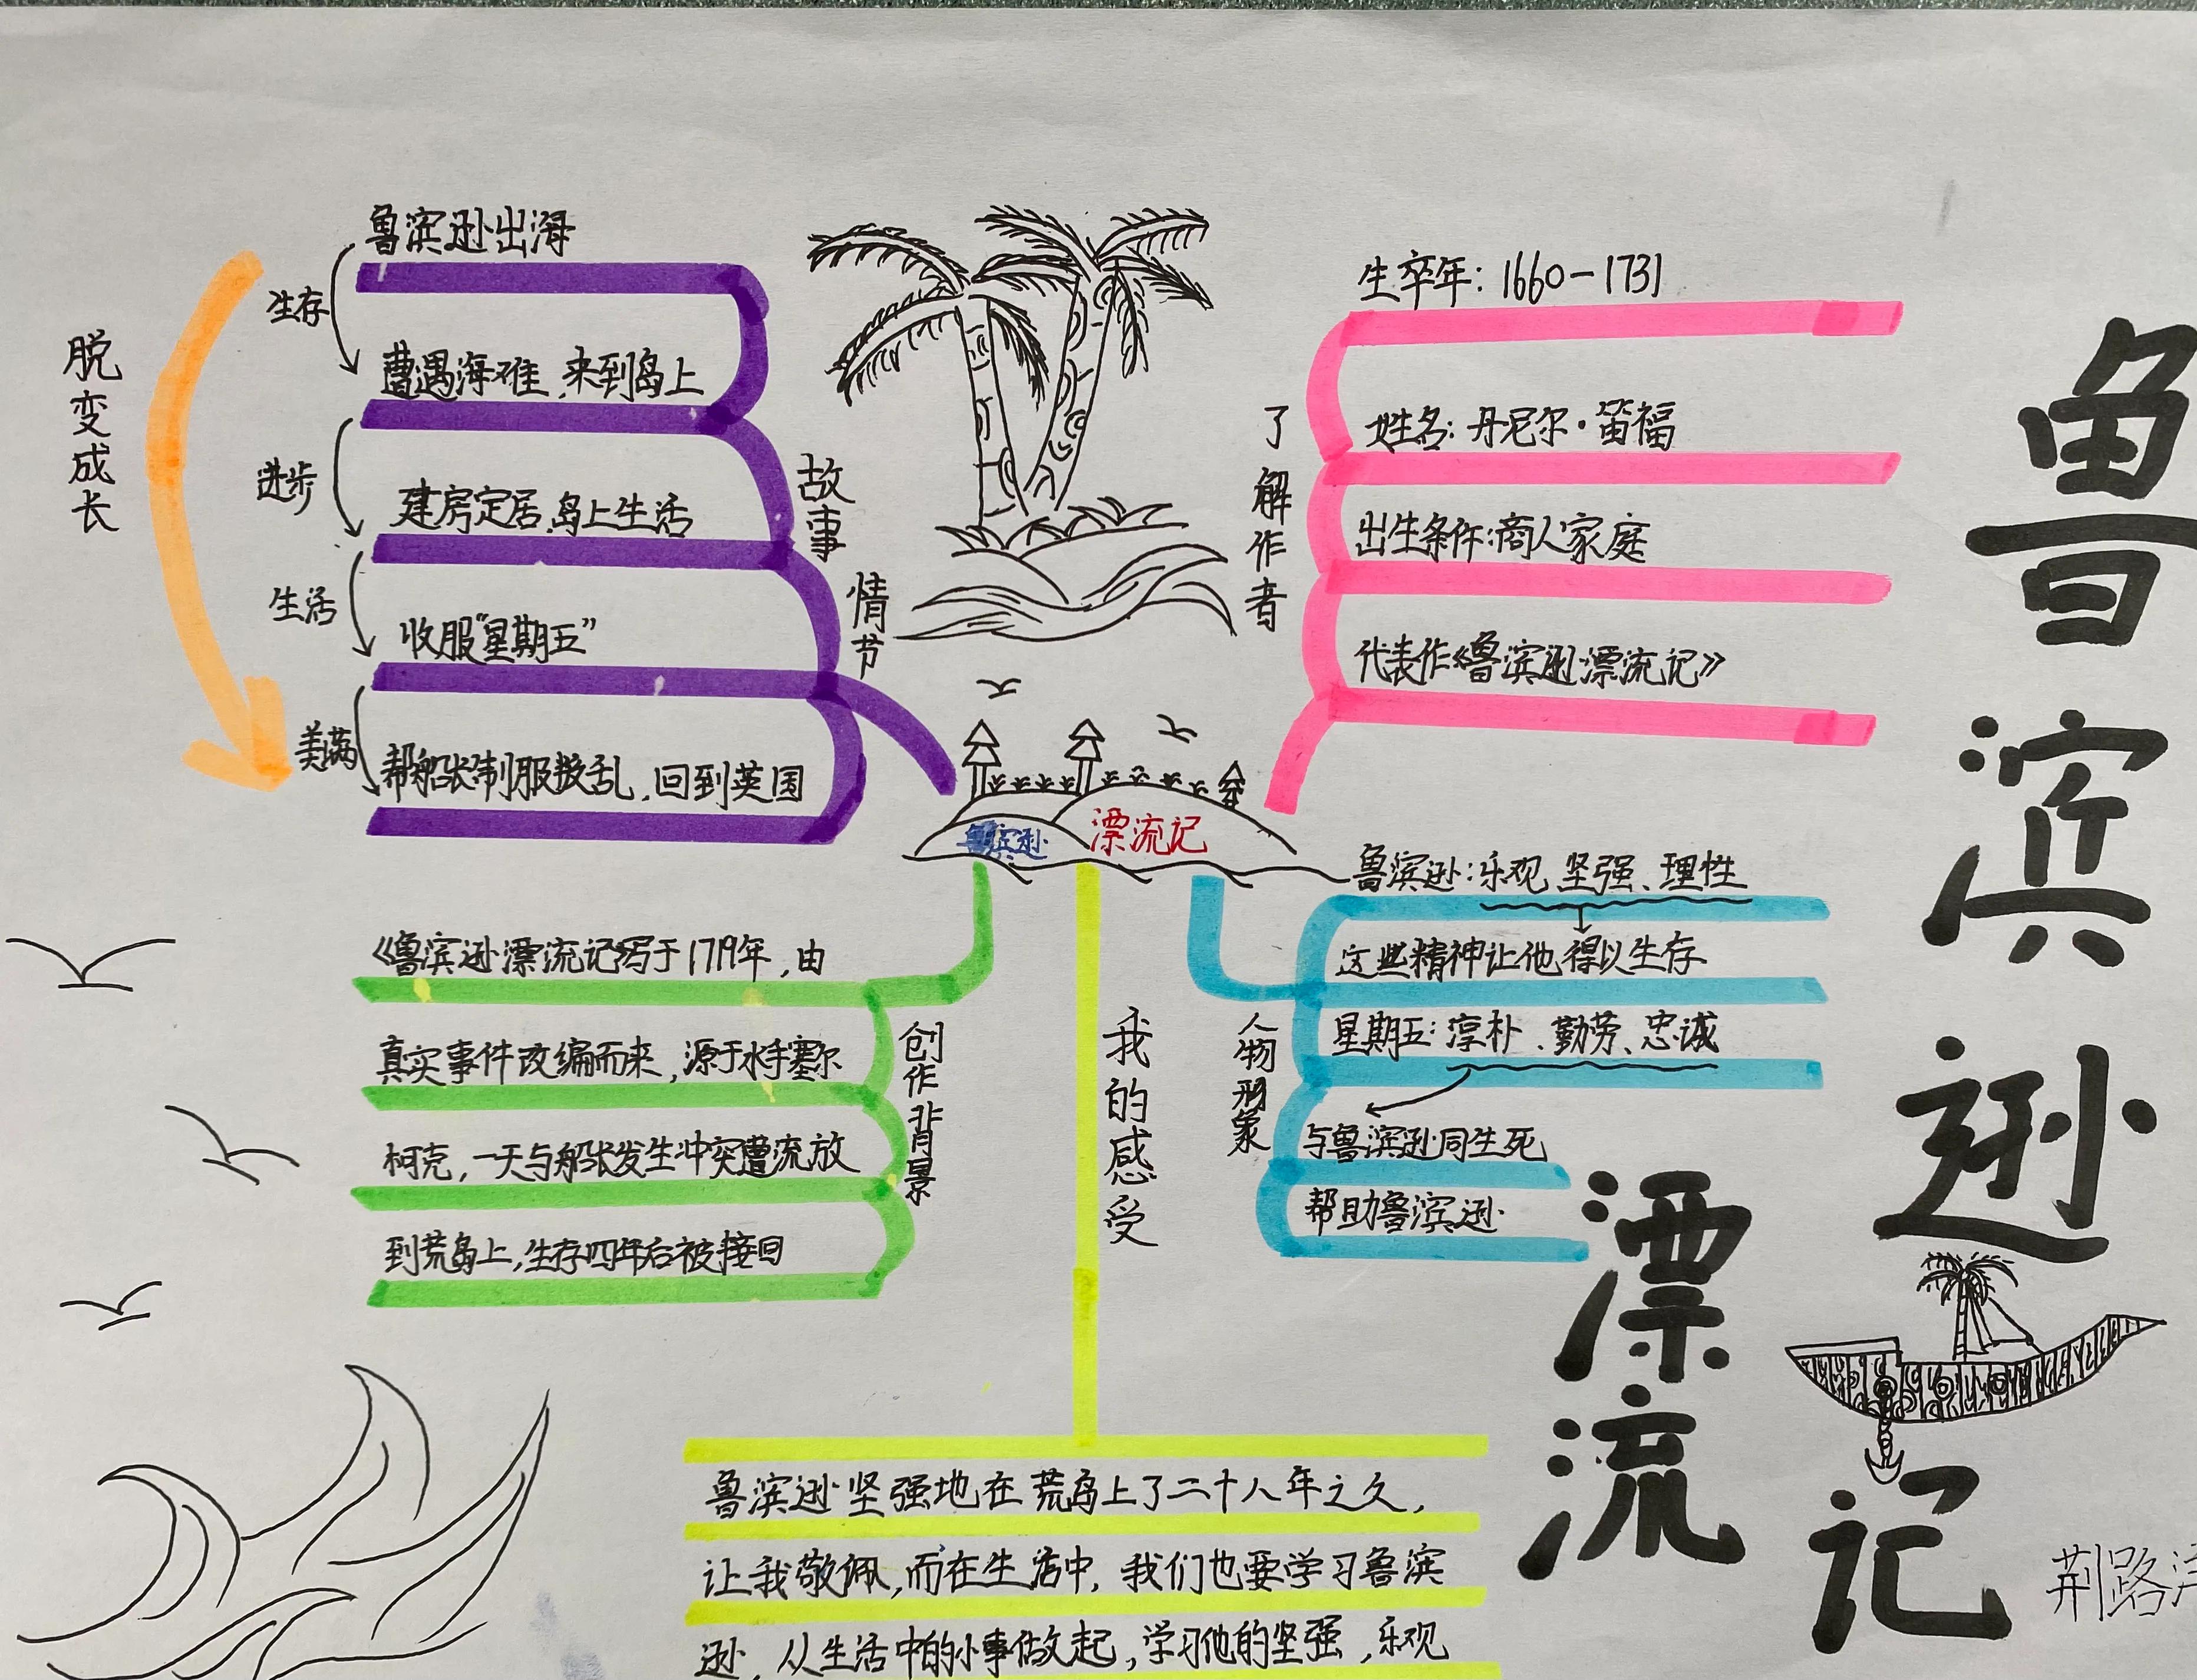 鲁滨逊
漂流
记
脱变成长
生存
进步
生活
美满
鲁滨逊出海
遭遇海难,来到岛上
建房定居,岛上生活
收服“星期五”
帮船长制服叛乱,回到英国
故事
情节
了解作者
生卒年:1660-1731
姓名:丹尼尔·笛福
出生条件:商人家庭
代表作《鲁滨逊漂流记》
鲁滨逊 漂流记
创作背景
《鲁滨逊漂流记》写于1719年,由
真实事件改编而来,源于水手塞尔
柯克,一天与船长发生冲突遭流放
到荒岛上,生存四年后被接回
人物形象
鲁滨逊:乐观、坚强、理性
这些精神让他得以生存
星期五:淳朴、勤劳、忠诚
与鲁滨逊同生死
帮助鲁滨逊
我的感受
鲁滨逊坚强地在荒岛上了二十八年之久,
让我敬佩,而在生活中,我们也要学习鲁滨
逊,从生活中的小事做起,学习他的坚强,乐观
荆路